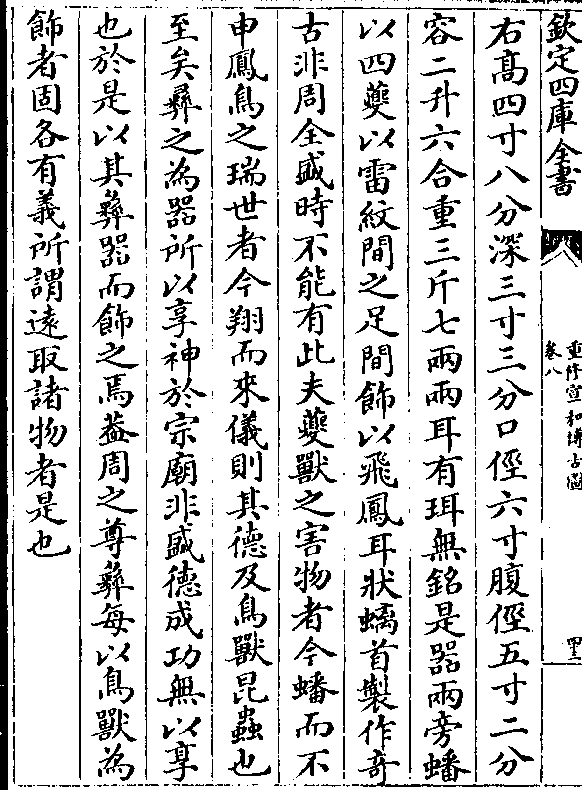 欽定四庫全書
重修宣和博古圖
卷八
四十三
右髙四寸八分深三寸三分口徑六寸腹徑五寸二分
容二升六合重三斤七兩兩耳有珥無銘是器兩旁蟠
以四夔以雷紋間之足間飾以飛鳳耳狀螭首製作竒
古非周全盛時不能有此夫夔獸之害物者今蟠而不
申鳳鳥之瑞世者今翔而來儀則其德及鳥獸昆蟲也
至矣彞之為器所以享神於宗廟非盛德成功無以享
也於是以其彞器而飾之焉葢周之尊彞每以鳥獸為
飾者固各有義所謂逺取諸物者是也